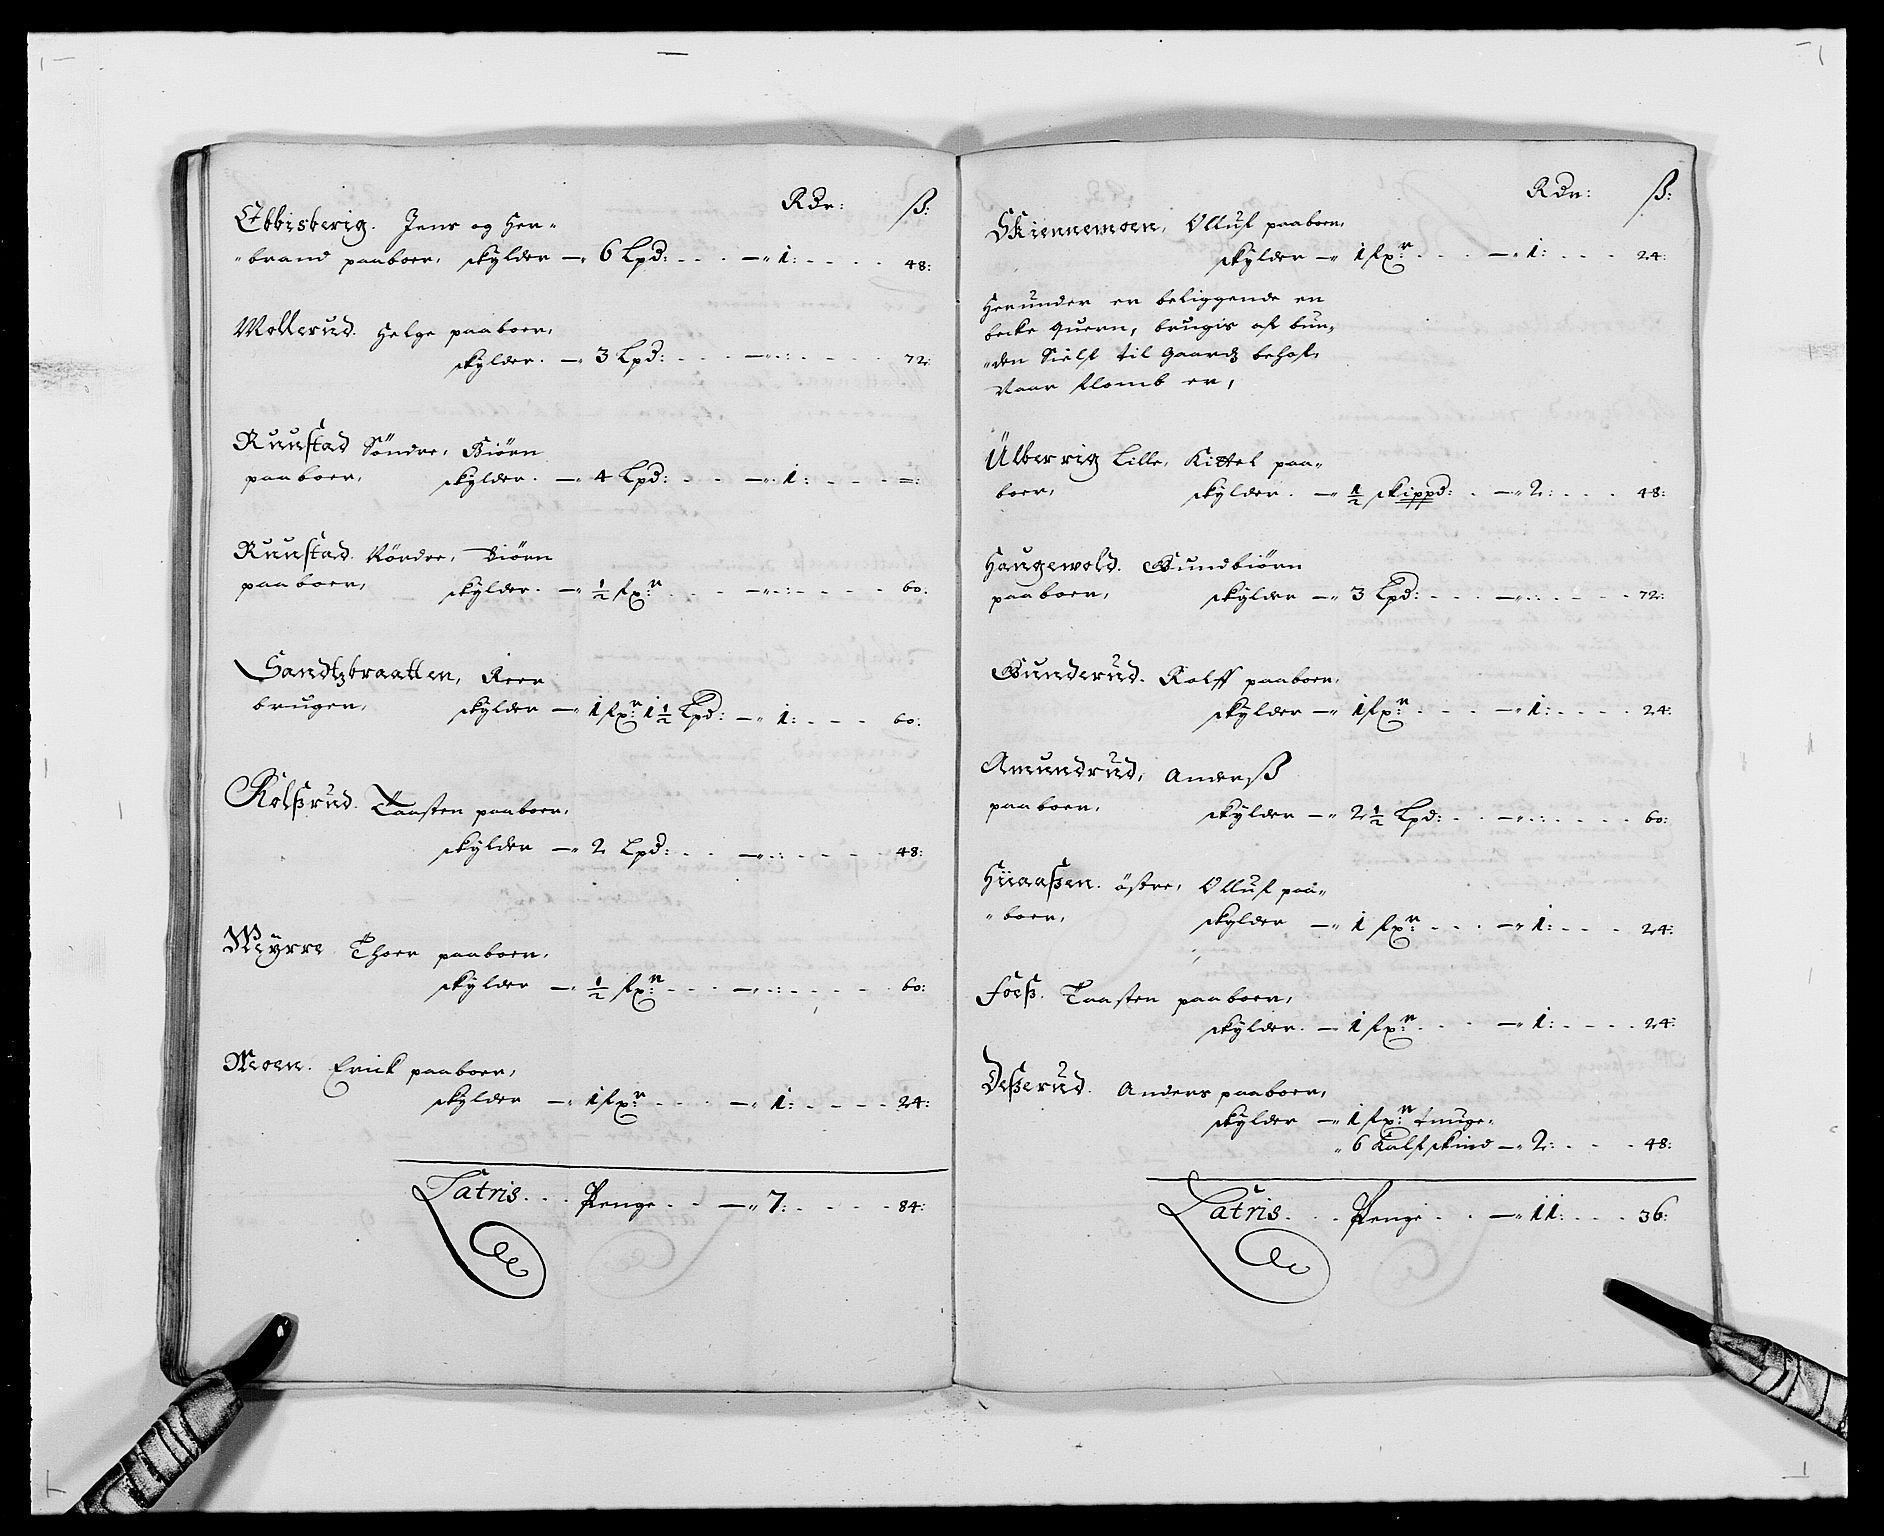 Rdr: ß:
Ebbisberig. Jens og Her-
brand paaboer, skylder - 6 Lpd: - 1: 48:
Mollerud. Helge paaboer,
skylder. - 3 Lpd: - : 72:
Ruustad Söndre, Biörn
paaboer, skylder. - 4 Lpd: - 1: - :
Ruustad. Nöndre, Biörn
paaboer, skylder. - ½ fxr: - : 60:
Sandtzbraatten, Reer
brugen, skylder - 1 fxr: 1½ Lpd: - 1: 60:
Kolßrud. Taasten paaboer,
skylder - 2 Lpd: - : 48:
Myrre Thoer paaboer,
skylder - ½ fxr: - : 60:
Moen. Erick paaboer,
skylder - 1 fxr: - 1: 24:
Latris. Penge - 7: 84:
Rdr: ß:
Skiennemoen, Olluf paaboer,
skylder - 1 fxr: - 1: 24:
Herunder er beliggende en
becke quern, brugis af bun-
den Sielf til Gaardz behof,
Naar flomb er,
Ulberrig Lille, Kittel paa-
boer, skylder. - ½ skippd: - 2: 48:
Haugewold. Gundbiörn
paaboer, skylder - 3 Lpd: - : 72:
Gunderud. Rolff paaboer,
skylder - 1 fxr: - 1: 24:
Amundrud, Anderß
paaboer, skylder - 2½ Lpd: - : 60:
Hiiaaßen. östre, Olluf paa-
boer, skylder - 1 fxr: - 1: 24:
Foeß. Taasten paaboer,
skylder. - 1 fxr: - 1: 24:
Deßerud. Anders paaboer,
skylder - 1 fxr: tunge,
6 Kalfskind - 2: 48:
Latris. Penge - 11: 36: